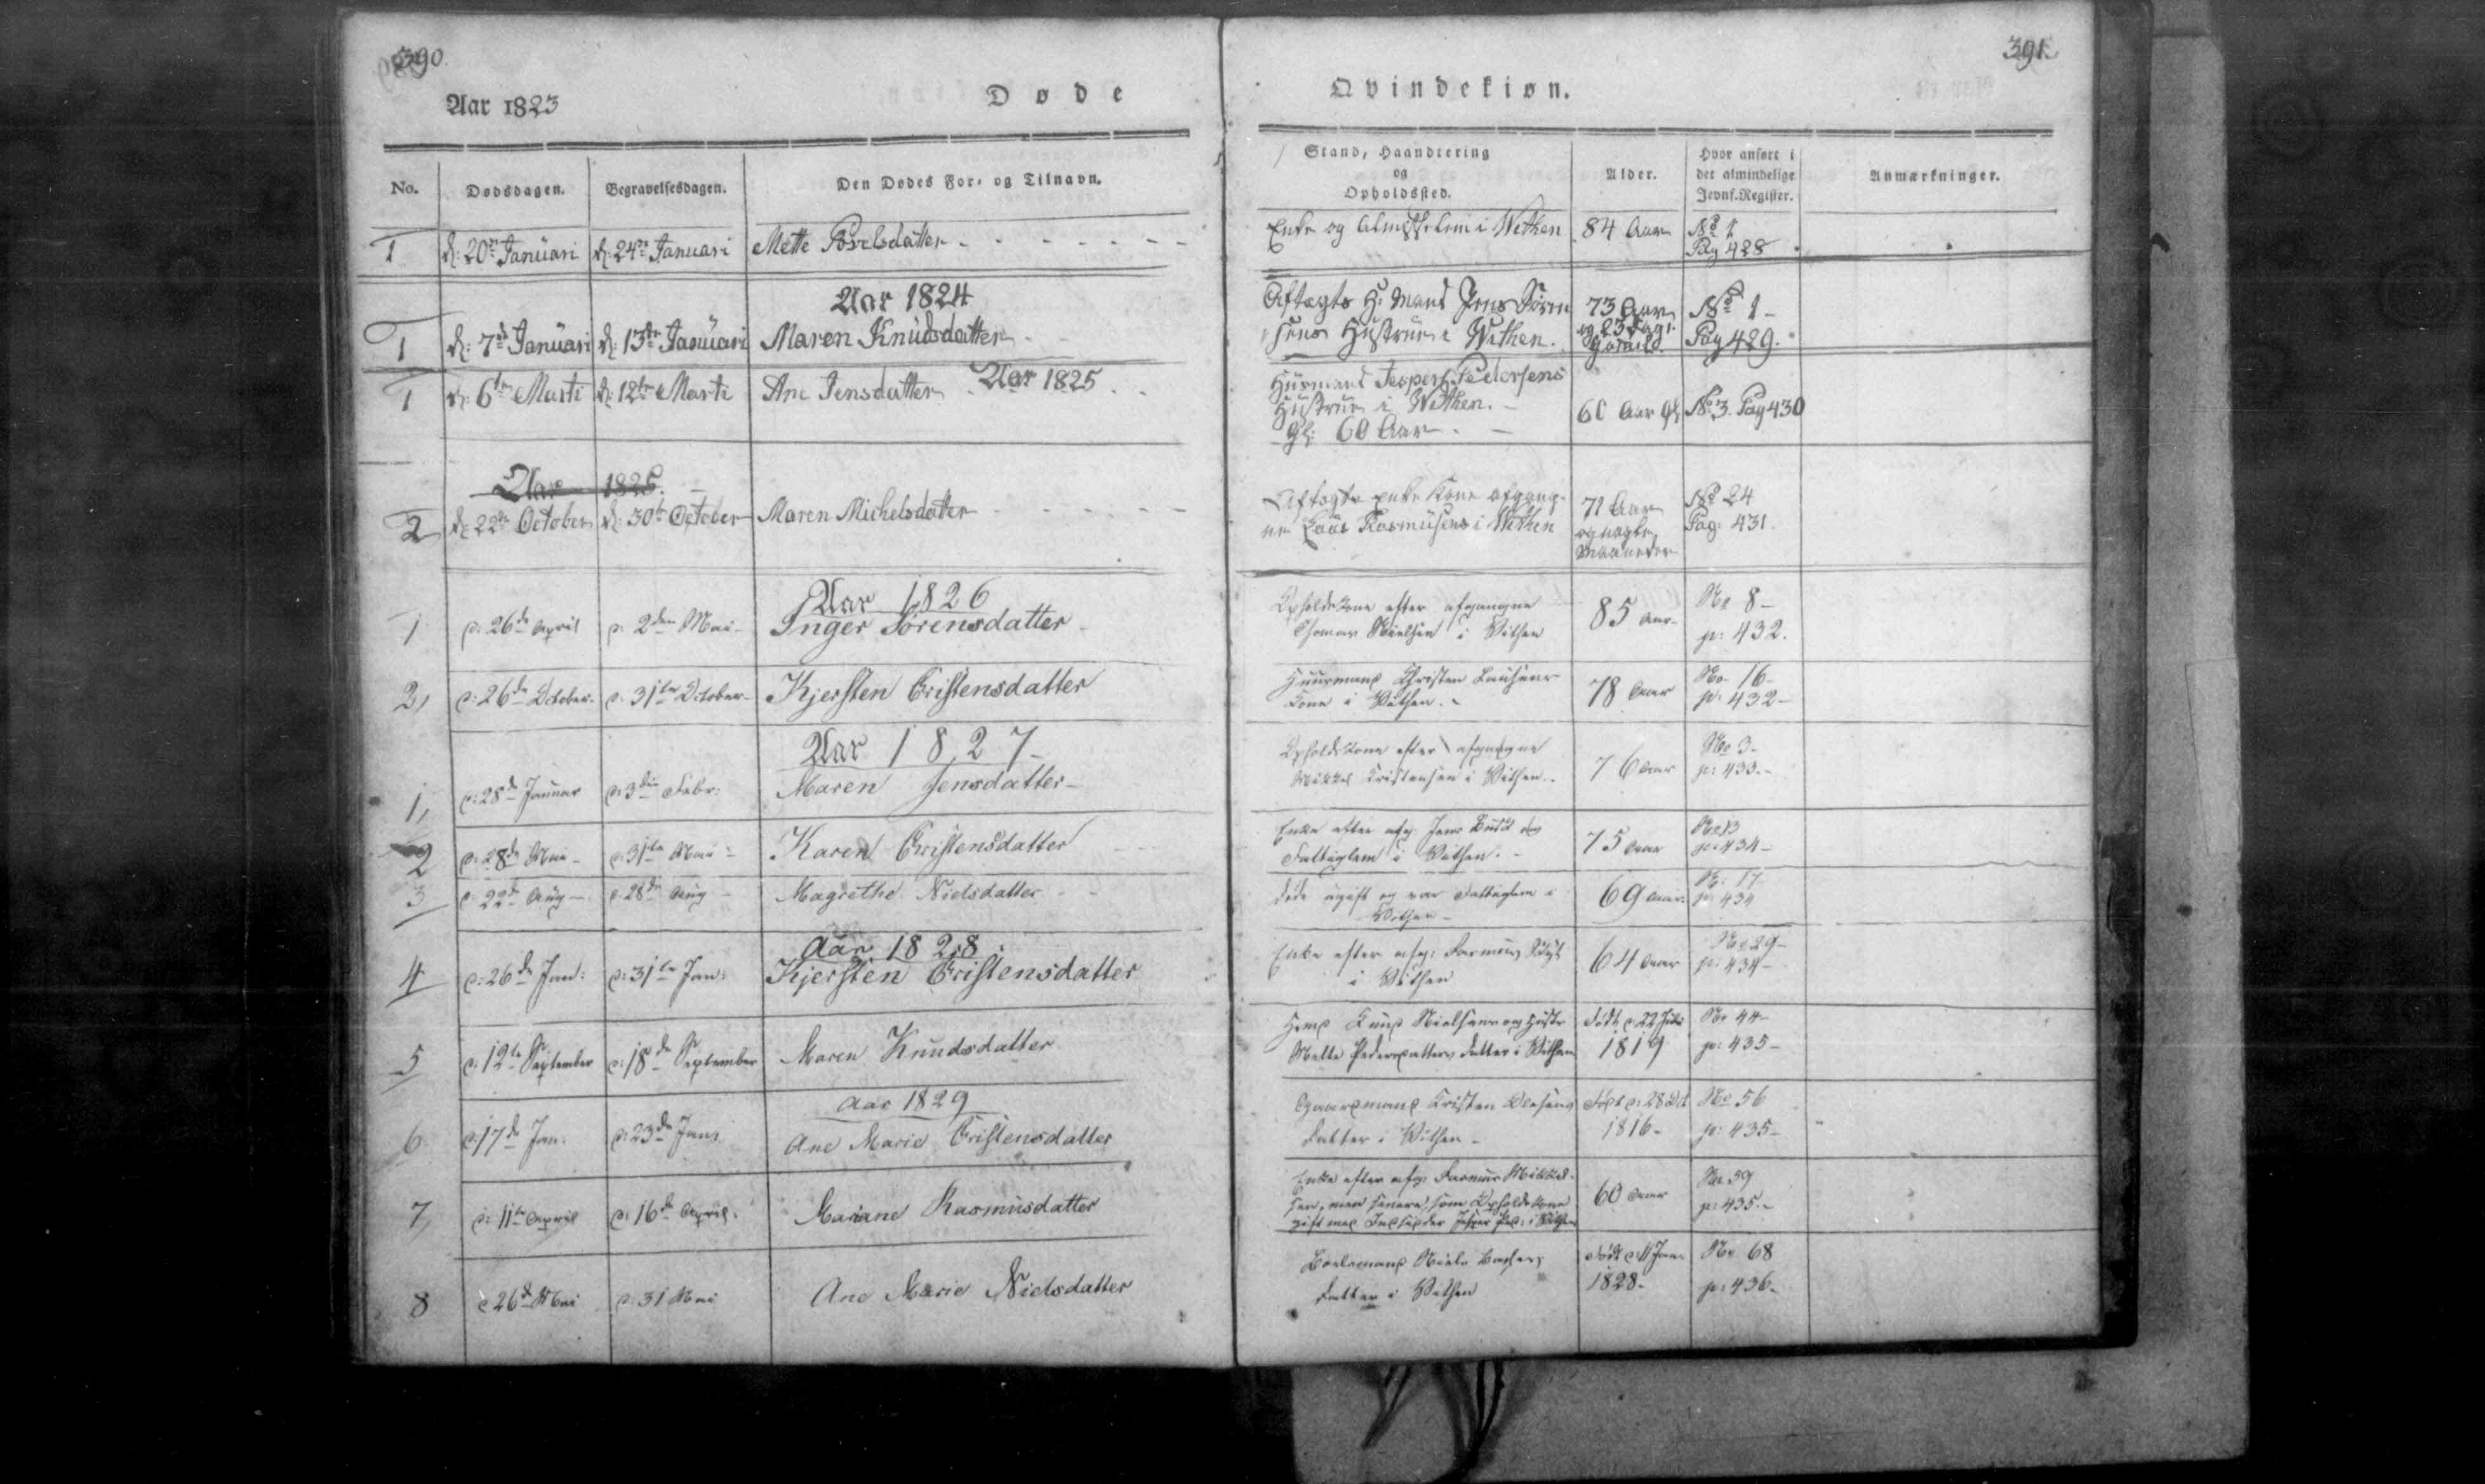 390
391
Aar 1823
Døde
Qvindekiøn.
No.
Dødsdagen.
Begravelsesdagen.
Den Dødes For- og Tilnavn.
Stand, Haandtering
og
Opholdssted.
Alder.
Hvor anført i
det almindelige
Jevnf.Register.
Anmærkninger.
1 d: 20de Januari d: 24de Januari Mette Povelsdatter
Enke og Almisselem i Withen 84 Aar No 1
Pag 428
Aar 1824
1 d: 7de Januari d: 13de Januari Maren Knudsdatter
Aftægts H: Mand Jens Søren
sens Hustrue i Withen.
73 Aar
og 23 Dage
gammel.
No 1
Pag 429.
Aar 1825
1 d: 6te Marti d: 12te Marti Ane Jensdatter
Huusmand Jesper Pedersens
Hustrue i Withen.
gl: 60 Aar
60 Aar gl No 3. Pag 430
Aar 1825.
2 d: 22de October d: 30te October Maren Michelsdatter
Aftægts enke Kone afgang-
ne Laus Rasmusens i Withen
71 Aar
og nogle
Maaneder
No 24
Pag: 431.
Aar 1826
1 d: 26de April d: 2den Mai Inger Sørensdatter
Opholdskone efter afgangne
Thomas Nielsen i Vithen
85 Aar
No 8
p: 432.
2, d: 26de October d: 31te October Kjersten Cristensdatter
Huusmand Christen Lausens
Kone i Vithen.
78 Aar
No 16
p: 432
Aar 1827
1, d: 28de Januar d: 3die Febr: Maren Jensdatter
Opholdskone efter afgangne
Mikkel Cristensen i Vithen.
76 Aar
No 3.
p: 433.
2 d: 28de Mai d: 31te Mai Karen Cristensdatter
Enke efter afg: Jens og
Fattiglem i Vithen.
75 Aar
No 13
p: 434
3 d: 22de Aug d: 28de Aug Magrethe Nielsdatter
døde ugift og var Fattiglem i
Vithen
69 Aar
No: 17
p: 434
Aar 1828
4 d: 26de Jan: d: 31te Jan: Kjersten Cristensdatter
Enke efter afg: Rasmus
i Vithen
64 Aar
No 29
p: 434
5 d: 12te September d: 18de September Maren Knudsdatter
Hmd Knud Nielsens og Hustr
Mette Pedersdatters Datter i Vithen
Født d: 22
1819
No 44
p: 435
Aar 1829
6. d: 17de Jan. d: 23de Jan: Ane Marie Cristensdatter
Gaardmand Cristen
Datter i Vithen
Født d: 28 Oct
1816
No 56
p: 435
7, d: 11te April d: 16de April. Mariane Rasmusdatter
Enke efter afg: Rasmus Mikkel-
sen, men senere, som Opholdskone
gift med Indsidder Jesper Ped: i Vithen
60 Aar
No 59
p: 435.
8 d 26de Mai d: 31 Mai Ane Marie Nielsdatter
Boelsmand Niels
Datter i Vithen
Født d: 11 Jan
1828.
No 68
p: 436.